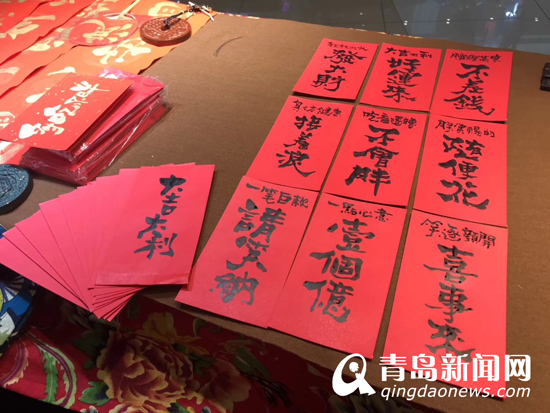 發大財
大吉大利
好運來
不差錢
身体健康
接着浪
不會胖
隨便花
一筆巨款
請笑納
一點心意
壹個億
笑逐顏開
喜事來
大吉大利
青岛新闻网
qingdaonews.com